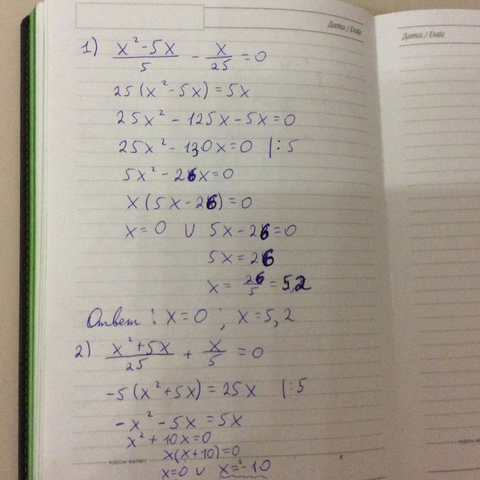 Дата / Date
Дата / Date
1) (x² - 5x)/5 - x/25 = 0
25(x² - 5x) = 5x
25x² - 125x - 5x = 0
25x² - 130x = 0 |:5
5x² - 26x = 0
x(5x - 26) = 0
x = 0 ∪ 5x - 26 = 0
5x = 26
x = 26/5 = 5,2
Ответ: x = 0; x = 5,2
2) (x² + 5x)/25 + x/5 = 0
-5(x² + 5x) = 25x |:5
-x² - 5x = 5x
x² + 10x = 0
x(x + 10) = 0
x = 0 ∪ x = -10
курсы валют